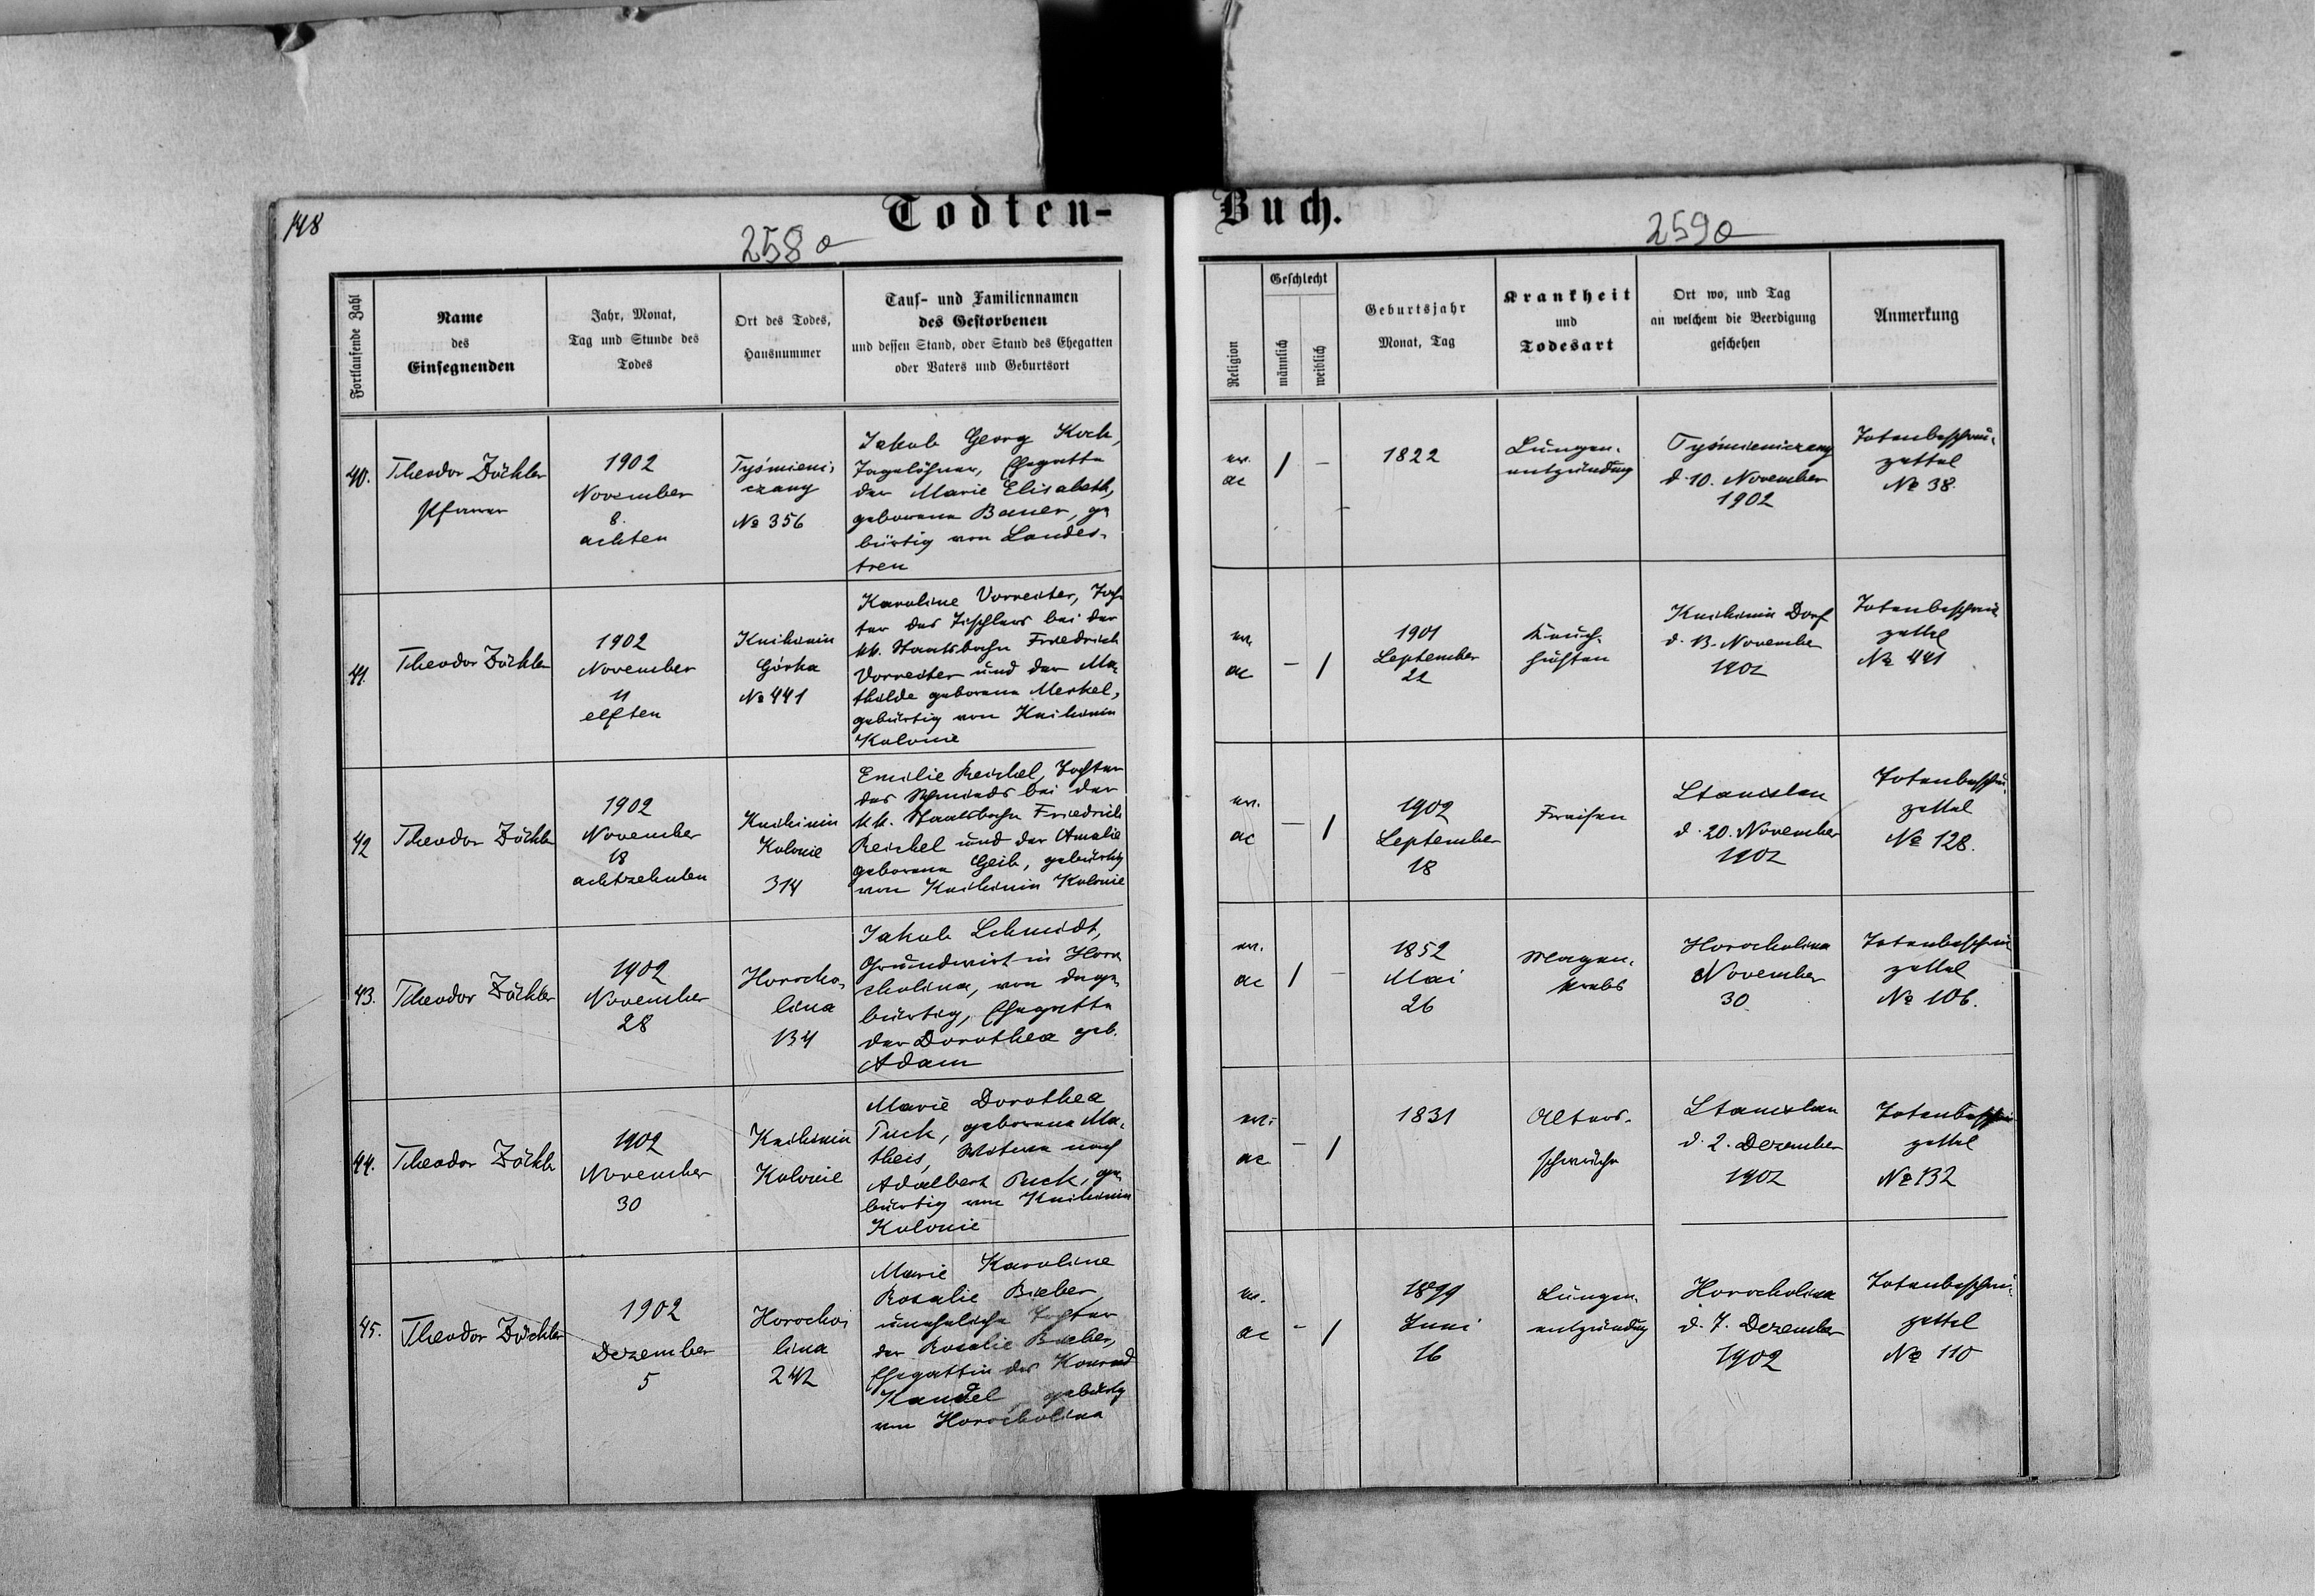 148
Todten-
Buch.
258a
259a
Fortlaufende Zahl
Name
des
Einsegnenden
Jahr, Monat,
Tag und Stunde des
Todes
Ort des Todes,
Hausnummer
Tauf- und Familiennamen
des Gestorbenen
und dessen Stand, oder Stand des Ehegatten
oder Vaters und Geburtsort
Religion
Geschlecht
männlich
weiblich
Geburtsjahr
Monat, Tag
Krankheit
und
Todesart
Ort wo, und Tag
an welchem die Beerdigung
geschehen
Anmerkung
40.
Theodor Zöckler
Pfarrer
1902
November
8.
achten
Tyśmieni-
czany
№ 356
Jakob Georg Koch,
Tagelöhner, Ehegatte
der Marie Elisabeth,
geborene Bauer, ge
bürtig von Landes-
treu
ev.
ac
1
-
1822
Lungen-
entzündung
Tyśmieniczany
d. 10. November
1902
Totenbeschau-
zettel
№ 38.
41.
Theodor Zöckler
1902
November
11
elften
Knihinin
Górka
№ 441
Karoline Vorreiter, Toch
ter des Tischlers bei der
kk. Staatsbahn Friedrich
Vorreiter und der Ma-
thilde geborene Merkel,
gebürtig von Knihinin
Kolonie
ev.
ac
-
1
1901
September
22
Keuch-
husten
Knihinin Dorf
d. 13. November
1902
Totenbeschau
zettel
№ 441
42
Theodor Zöckler
1902
November
18
achtzehnten
Knihinin
Kolonie
314
Emilie Reichel, Tochter
des Schmieds bei der
kk. Staatsbahn Friedrich
Reichel und der Amalie
geborene Geib, gebürtig
von Knihinin Kolonie
ev.
ac
-
1
1902
September
18
Fraisen
Stanislau
d. 20. November
1902
Totenbeschau-
zettel
№ 128.
43.
Theodor Zöckler
1902
November
28
Horocho-
lina
134
Jakob Schmidt,
Grundwirt in Horo
cholina, von da ge-
bürtig, Ehegatte
der Dorothea geb.
Adam
ev.
ac
1
-
1852
Mai
26
Magen-
krebs
Horocholina
November
30
Totenbeschau
zettel
№ 106.
44.
Theodor Zöckler
1902
November
30
Knihinin
Kolonie
Marie Dorothea
Puck, geborene Ma-
theis, Witwe nach
Adalbert Puck, ge-
bürtig von Knihinin
Kolonie
ev.
ac
-
1
1831
Alters-
schwäche
Stanislau
d. 2. Dezember
1902
Totenbeschau
zettel
№ 132
45.
Theodor Zöckler
1902
Dezember
5
Horocho-
lina
242
Marie Karoline
Rosalie Bieber,
uneheliche Tochter
der Rosalie Bieber,
Ehegattin des Konrad
Kandel, gebürtig
von Horocholina
ev.
ac
-
1
1899
Juni
16
Lungen-
entzündung
Horocholina
d. 7. Dezember
1902
Totenbeschau-
zettel
№ 110